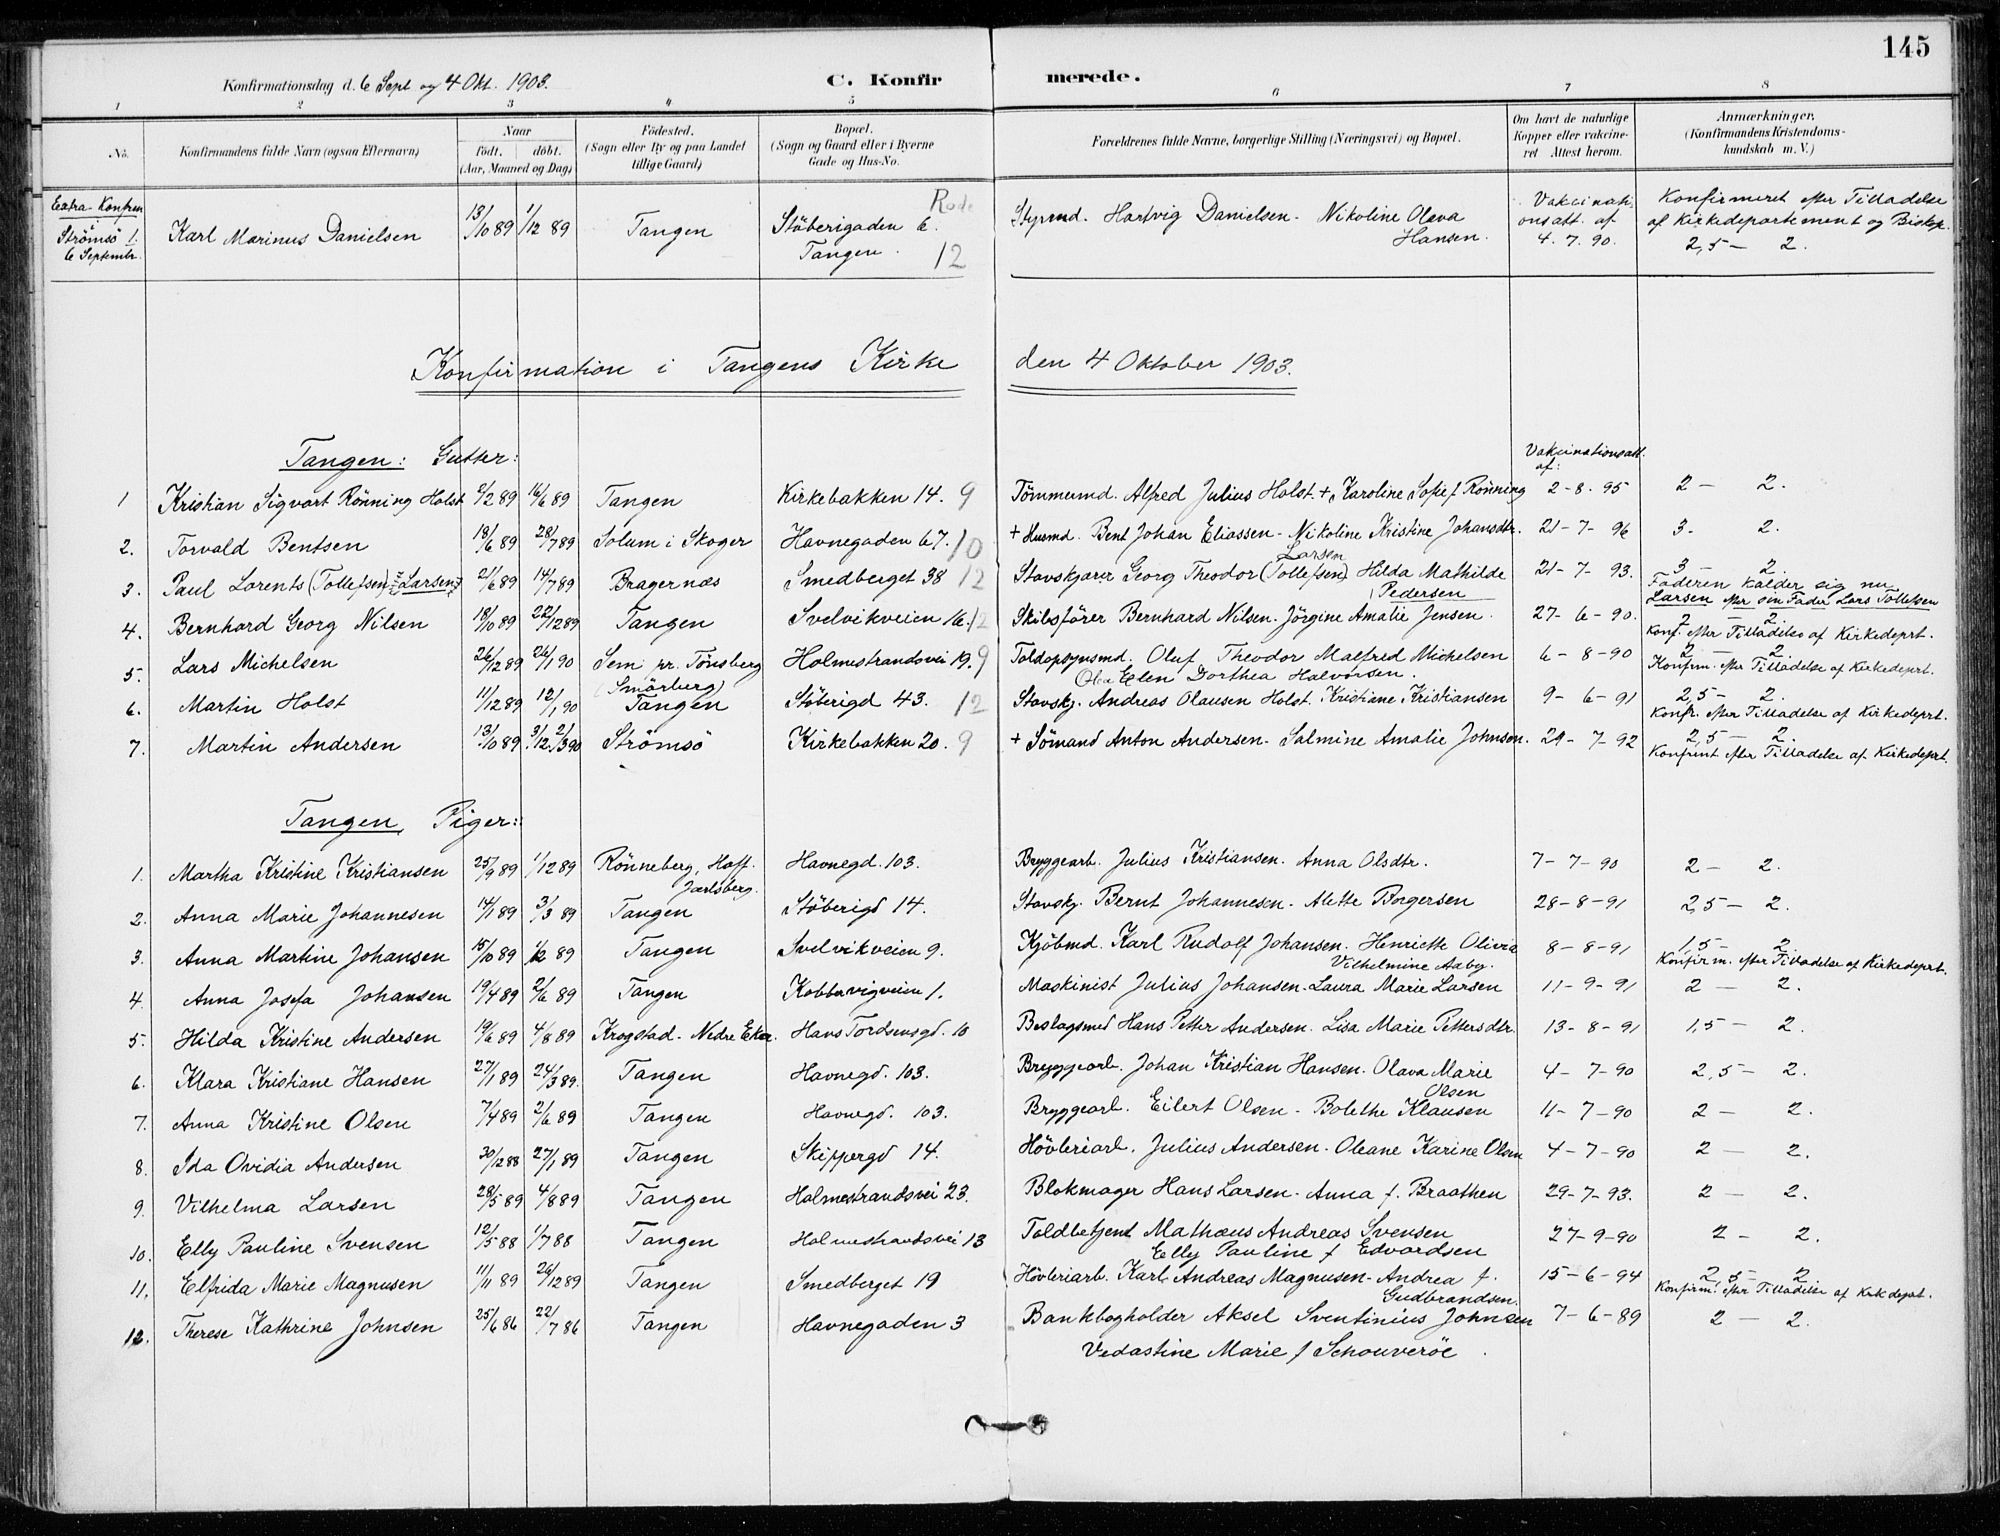 145
Konfirmationsdag d. 6 Sept og 4 Okt. 1903.
C. Konfirmerede.
1 2 3 4 5 6 7 8
No. Konfirmandens fulde Navn (ogsaa Efternavn) Naar født, døbt. (Aar, Maaned og Dag) Fødested. (Sogn eller By og paa Landet tillige Gaard) Bopæl. (Sogn og Gaard eller i Byerne Gade og Hus-No. Forældrenes fulde Navne, borgerlige Stilling (Næringsvei) og Bopæl. Om havt de naturlige Kopper eller vakcineret Attest herom. Anmærkninger. (Konfirmandens Kristendomskundskab m. V.)
Extra-Konfirm
Strömsö 1.
6 Septembr.
Karl Marinus Danielsen 13/10 89 1/12 89 Tangen Stöberigaden 6. Tangen. Rode 12 Styrmd. Hartvig Danielsen - Nikoline Olava Hansen. Vakcinationsatt. af 4.7.90. Konfirmeret efter Tilladelse af Kirkedepartement og Biskop. 2,5 — 2.
Konfirmation i Tangens Kirke den 4 Oktober 1903.
Tangen: Gutter: Vakcinationsatt. af:
1 Kristian Sigvart Rönning Holst 2/2 89 16/6 89 Tangen Kirkebakken 14. 9 Tömmermd. Alfred Julius Holst. + Karoline Sofie f Rönning 2-8-95 2 — 2.
2. Torvald Bentsen 18/6 89 28/7 89 Solum i Skoger Havnegaden 67. 10 + Husmd. Bent Johan Eliassen - Nikoline Kristine Johansdtr. 21-7-96 3. 2.
3. Paul Lorents (Tollefsen) Larsen 21/6 89 14/7 89 Bragernæs Smedberget 38 12 Stavskjærer Georg Theodor (Tollefsen) Larsen Hilda Mathilde Pedersen 21-7-93. 3 — 2. Faderen kalder sig nu Larsen efter sin Fader Lars Tollefsen
4. Bernhard Georg Nilsen 18/10 89 22/12 89 Tangen Svelvikveien 16. 12 Skibsförer Bernhard Nilsen. Jörgine Amalie Jensen. 27-6-90. 2 — 2. Konf. efter Tilladelse af Kirkedeprt.
5. Lars Michelsen 26/12 89 26/1 90 Sem pr. Tönsberg (Smörberg) Holmestrandsvei 19. 9 Toldopsynsmd. Oluf Theodor Malfred Michelsen Elen Dorthea Halvorsen. 6-8-90 2 — 2. Konfirm. efter Tilladelse af Kirkedeprt.
6. Martin Holst 11/12 89 12/1 90 Tangen Stöberigd 43. 12 Stavskj. Andreas Olausen Holst. Kristiane Kristiansen 9-6-91 2,5 — 2. Konfr. efter Tilladelse af Kirkedeprt.
7. Martin Andersen 13/10 89 3/12. 2/3 90 Strömsö Kirkebakken 20. 9 + Sömand Anton Andersen - Salmine Amalie Johnsen. 29-7-92 2,5 — 2. Konfirmt efter Tilladelse af Kirkedeprt.
Tangen, Piger:
1. Martha Kristine Kristiansen 25/9 89 1/12 89 Rönneberg, Hoff. Jarlsberg. Havnegd. 103. Bryggearb. Julius Kristiansen. Anna Olsdtr. 7-7-90 2 — 2.
2. Anna Marie Johannesen 14/1 89 3/3 89 Tangen Stöberigd 14. Stavskj. Bernt Johannesen - Alette Borgersen 28-8-91 2,5 — 2.
3. Anna Martine Johansen 15/10 89 1/12 89 Tangen Svelvikveien 9. Kjöbmd. Karl Rudolf Johansen. Henriette Olivia Vilhelmine Aaby. 8-8-91 1,5 — 2 Konfirm. efter Tilladelse af Kirkedeprt.
4. Anna Josefa Johansen 19/4 89 2/6 89 Tangen Kobbervigveien 1. Maskinist Julius Johansen - Laura Marie Larsen 11-9-91 2 — 2.
5. Hilda Kristine Andersen 19/6 89 4/8 89 Krogstad - Nedre Eker. Hans Tordsensgd. 10 Beslagsmed Hans Petter Andersen. Lisa Marie Pettersdtr. 13-8-91 1,5 — 2.
6. Klara Kristiane Hansen 27/1 89 24/3 89. Tangen Havnegd. 103. Bryggearb. Johan Kristian Hansen. Olava Marie Olsen 4-7-90 2,5 — 2.
7. Anna Kristine Olsen 7/4 89 2/6 89 Tangen Havnegd. 103. Bryggearb. Eilert Olsen - Bolethe Klausen 11-7-90 2 — 2.
8. Ida Ovidia Andersen 30/12 88 27/1 89 Tangen Skippergd 14. Hövleriarb. Julius Andersen - Oleane Karine Olsen 4-7-90 2 — 2.
9. Vilhelma Larsen 28/5 89 4/8 89 Tangen Holmestrandsvei 23. Blokmager Hans Larsen - Anna f. Braathen 29-7-93. 2 — 2.
10. Elly Pauline Svensen 12/5 88 1/7 88 Tangen Holmestrandsvei 13 Toldbetjent Mathæus Andreas Svensen Elly Pauline f Edvardsen 27-9-90 2 - 2.
11. Elfrida Marie Magnusen 11/11 89 26/12 89 Tangen Smedberget 19 Hövleriarb. Karl Andreas Magnusen - Andrea f. Gudbrandsen. 15-6-94 2,5 — 2 Konfirm. efter Tilladelse af Kirkdeprt.
12. Therese Kathrine Johnsen 25/6 86 22/7 86 Tangen Havnegaden 3 Bankbogholder Aksel Sventinius Johnsen Vedastine Marie f Schouveröe. 7-6-89 2 — 2.